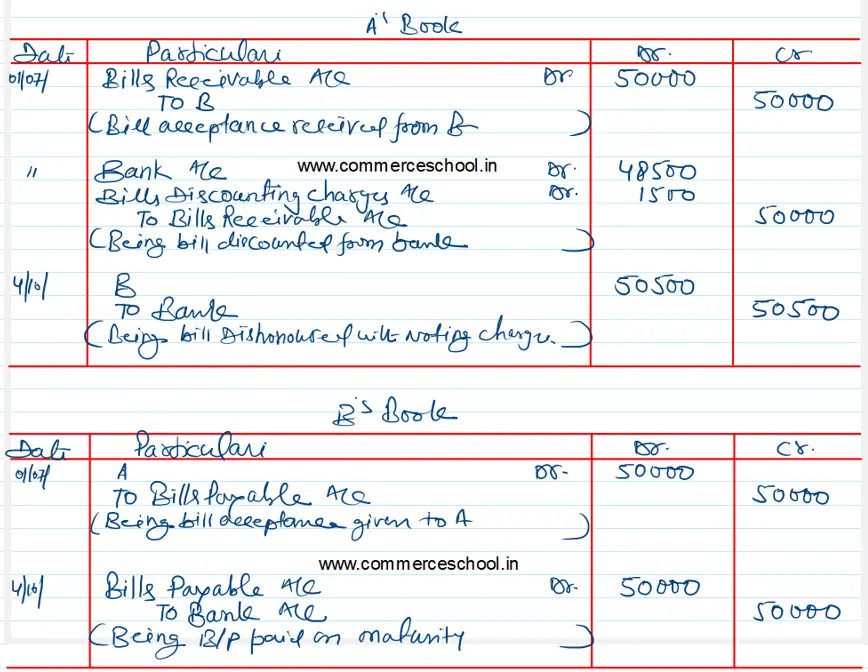 A's Book
Date Particulars Dr. Cr
01/07/ Bills Receivable A/c Dr 50000
To B 50000
(Bill acceptance received from B )
" Bank A/c www.commerceschool.in Dr. 48500
Bills Discounting charges A/c Dr. 1500
To Bills Receivable A/c 50000
(Being bill discounted from bank )
4/10/ B 50500
To Bank 50500
(Being bill Dishonoured with Noting charge. )
B's Book
Date Particulars Dr. Cr.
01/07/ A Dr- 50000
To Bills Payable A/c 50000
(Being bill acceptance given to A )
www.commerceschool.in
4/10/ Bills Payable A/c Dr. 50000
To Bank A/c 50000
(Being B/P paid on maturity )